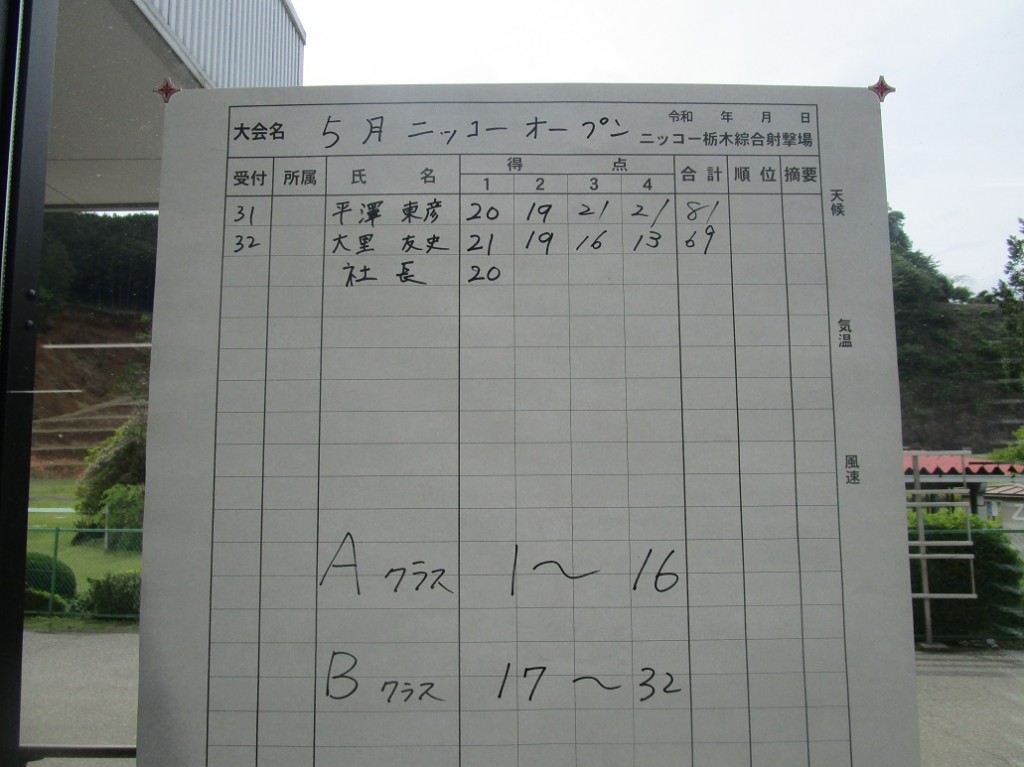 令和 年 月 日
大会名 5月ニッコーオープン ニッコー栃木綜合射撃場
受付 所属 氏 名 得 点 合計 順位 摘要
1 2 3 4
31 平澤 東彦 20 19 21 21 81
32 大里 友史 21 19 16 13 69
社長 20
Aクラス 1〜16
Bクラス 17〜32
天候
気温
風速